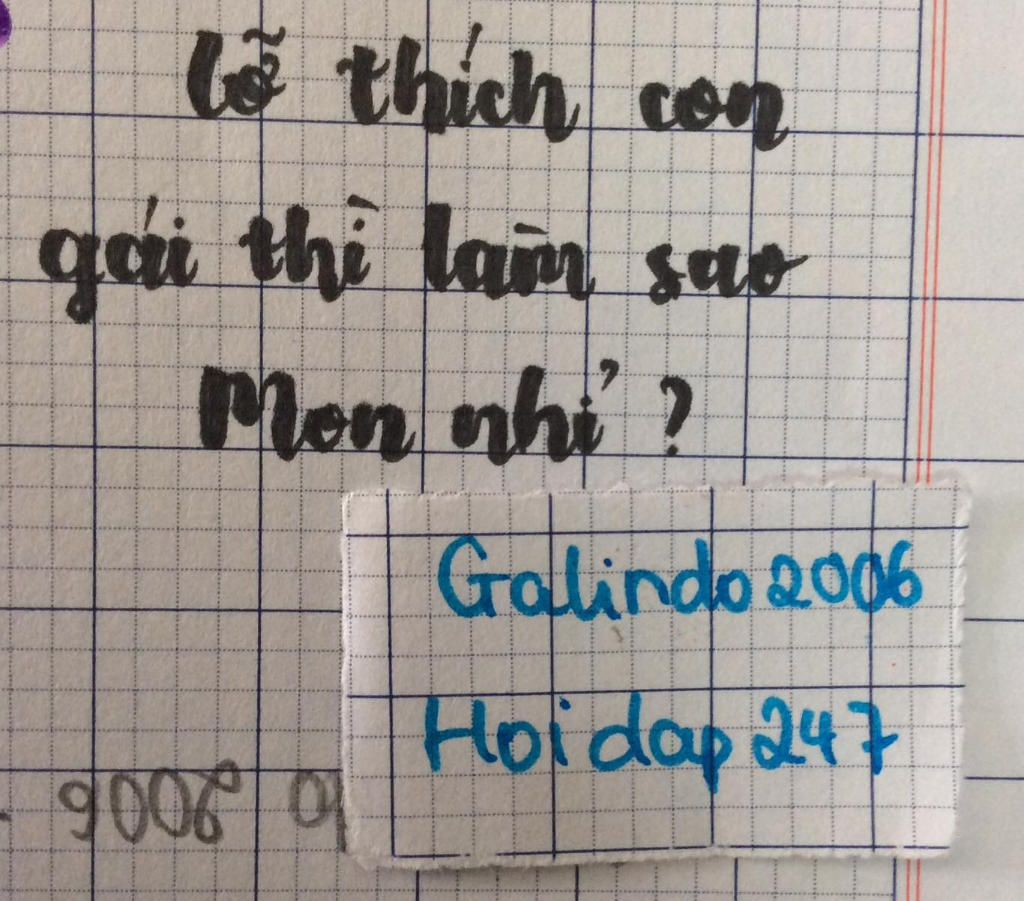 lỡ thích con
gái thì làm sao
Mon nhỉ ?
Galindo 2006
Hoidap 247
2006